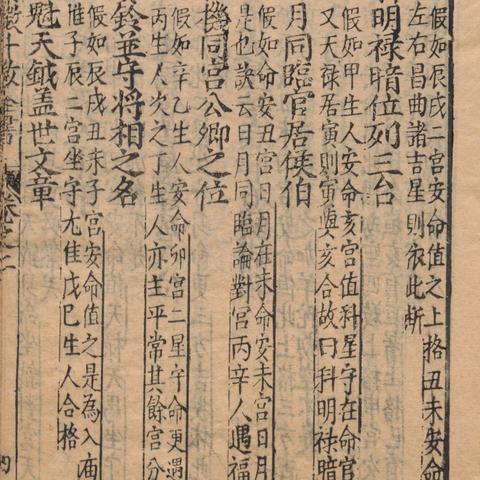 假如辰戌二宮安命值之上格丑未安命
左右昌曲諸吉星則依此斷
明祿暗位列三台
假如甲生人安命亥宮值科星守在命官
又天祿居寅則寅與亥合故曰科明祿暗
月同臨官居侯伯
假如命安丑宮日月在未命安未宮日月
是也訣云日月同臨論對宮丙辛人遇福
機同宮公卿之位
假如辛乙生人安命卯宮二星守命更遇
丙生人次之丁生人亦主平常其餘宮分
鈴並守將相之名
假如辰戌丑未子宮安命值之是為入庙
惟子辰二宮坐守尤佳戊巳生人合格
魁天鉞蓋世文章
斗數全書 卷之二